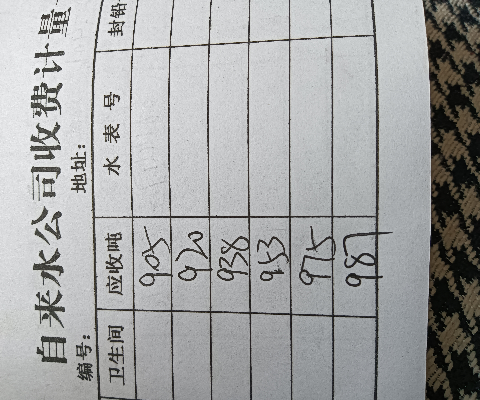 自来水公司收费计量
编号: 地址:
卫生间 应收吨 水表号 封铅
905
920
938
953
975
987